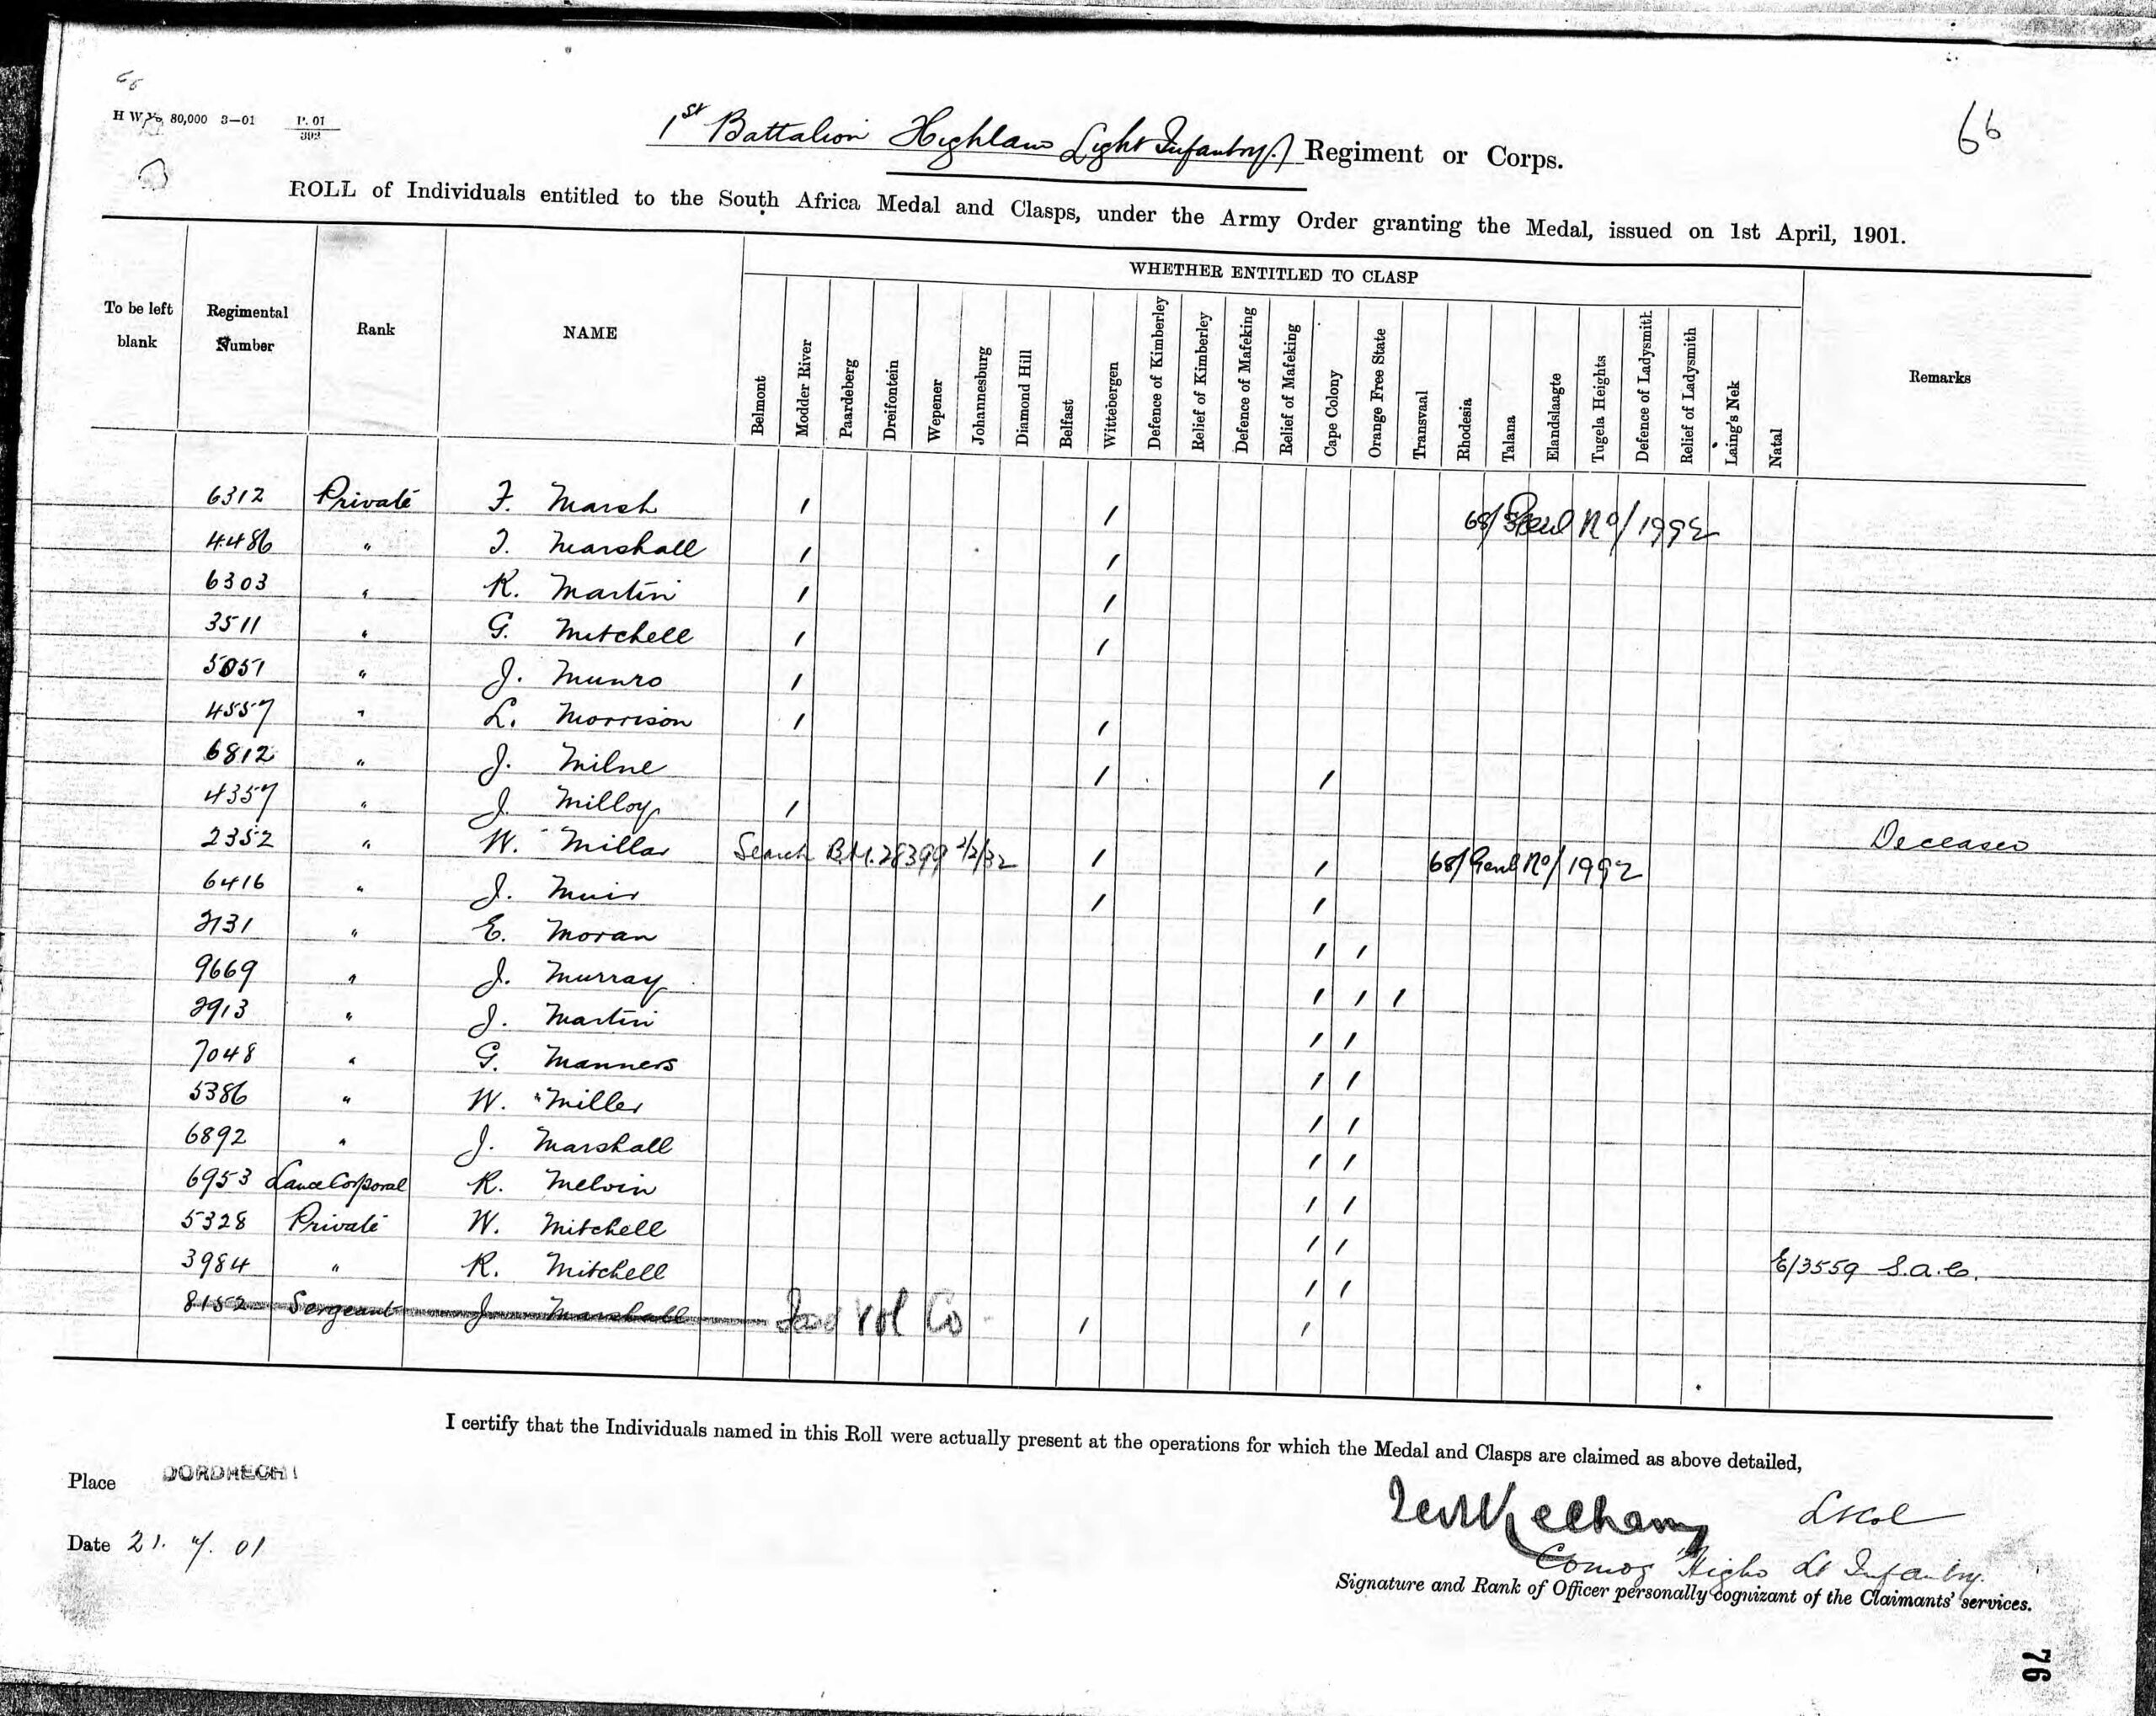 66
H W Vo 80,000 3—01 P. 01 / 393
1st Battalion Highland Light Infantry. Regiment or Corps.
ROLL of Individuals entitled to the South Africa Medal and Clasps, under the Army Order granting the Medal, issued on 1st April, 1901.
WHETHER ENTITLED TO CLASP
To be left blank Regimental Number Rank NAME Belmont Modder River Paardeberg Dreifontein Wepener Johannesburg Diamond Hill Belfast Wittebergen Defence of Kimberley Relief of Kimberley Defence of Mafeking Relief of Mafeking Cape Colony Orange Free State Transvaal Rhodesia Talana Elandslaagte Tugela Heights Defence of Ladysmith Relief of Ladysmith Laing's Nek Natal Remarks
6312 Private F. Marsh / / 68/Genl No/1992
4486 " T. Marshall / /
6303 " R. Martin / /
3511 " G. Mitchell / /
5051 " J. Munro /
4557 " L. Morrison / /
6812 " J. Milne / /
4357 " J. Milloy / Deceased
2352 " W. Millar Search B.M. 28399 2/2/32 / / 68/Genl No/1992
6416 " J. Muir / /
2131 " E. Moran / /
9669 " J. Murray / / /
2913 " J. Martin / /
7048 " G. Manners / /
5386 " W. Miller / /
6892 " J. Marshall / /
6953 Lance Corporal R. Melvin / /
5328 Private W. Mitchell / /
3984 " R. Mitchell / / E/3559 S.a.C.
8152 Sergeant J. Marshall Vol Co / /
I certify that the Individuals named in this Roll were actually present at the operations for which the Medal and Clasps are claimed as above detailed,
Place DORDRECHT
Kelham Lt Col
Date 21. 7. 01
Comdg Highd Lt Infantry.
Signature and Rank of Officer personally cognizant of the Claimants' services.
76